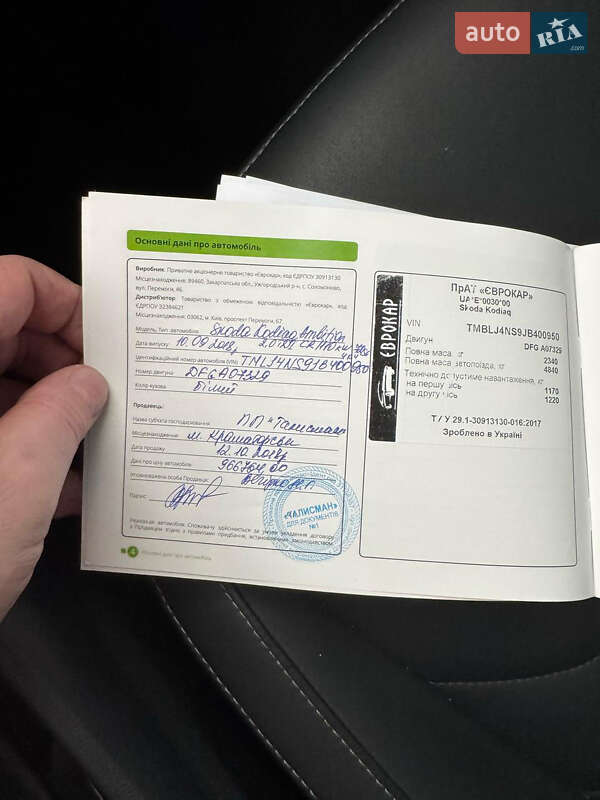 auto RIA.com
Основні дані про автомобіль
Виробник: Приватне акціонерне товариство «Єврокар», код ЄДРПОУ 30913130
Місцезнаходження: 89460, Закарпатська обл., Ужгородський р-н, с. Соломоново,
вул. Перемоги, 46
Дистриб'ютор: Товариство з обмеженою відповідальністю «Єврокар», код
ЄДРПОУ 32384621
Місцезнаходження: 03062, м. Київ, проспект Перемоги, 67
Модель, Тип. автомобіля: Skoda Kodiaq Ambition
Дата випуску: 10.09.2018р. 2.0
Ідентифікаційний номер автомобіля (VIN) TMBLJ4NS9JB400950
Номер двигуна DFGA07329
Колір кузова: білий
Продавець:
Назва суб'єкта господарювання: ПП «Талисман»
Місцезнаходження: м. Краматорськ
Дата продажу 12.10.2018р
Дані про ціну автомобіля: 966764,00
Уповноважена особа Продавця:
Підпис:
«ТАЛИСМАН»
ДЛЯ ДОКУМЕНТІВ
№1
Реалізація автомобіля Споживачу здійснюється за умови укладення договору
з Продавцем згідно з правилами придбання, встановленими законодавством.
4 Основні дані про автомобіль
ЄВРОКАР
ПрАТ «ЄВРОКАР»
UA*E*0030*00
Skoda Kodiaq
VIN TMBLJ4NS9JB400950
Двигун DFG A07329
Повна маса, кг 2340
Повна маса автопоїзда, кг 4840
Технічно допустиме навантаження, кг
на першу вісь 1170
на другу вісь 1220
Т/У 29.1-30913130-016:2017
Зроблено в Україні